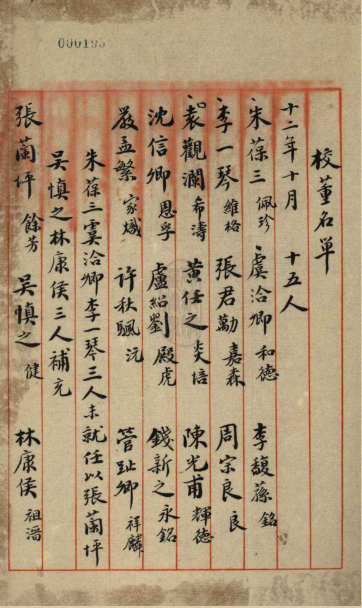 000195
校董名單
十二年十月 十五人
朱葆三 佩珍 虞洽卿 和德 李馥蓀 銘
李一琴 維格 張君勱 嘉森 周宗良 良
袁觀瀾 希濤 黃任之 炎培 陳光甫 輝德
沈信卿 恩孚 盧紹劉 殿虎 錢新之 永銘
嚴孟繁 家熾 許秋颿 沅 管趾卿 祥麟
朱葆三虞洽卿李一琴三人未就任以張蘭坪
吳慎之林康侯三人補充
張蘭坪 餘芳 吳慎之 健 林康侯 祖溍